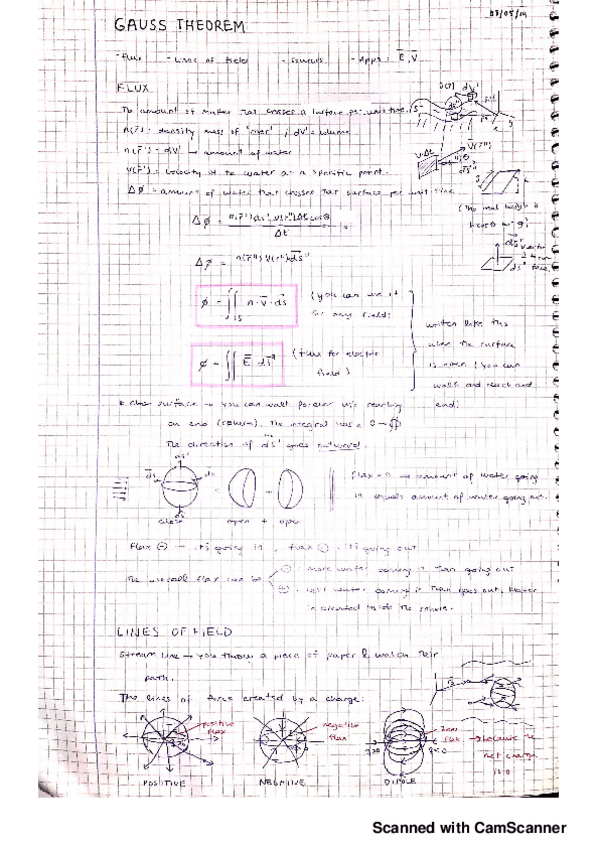 GAUSS THEOREM
03/05/19
- Flux - Lines of field - - Apps: E, V
FLUX
The amount of matter that crosses a surface per unit time.
n(r') = density mass of "river" ; dV' = volume
n(r') · dV' → amount of water
v(r') = velocity of the water at a specific point.
Δφ = amount of water that crosses that surface per unit time
Δφ = n(r')ds' v(r')Δt cosθ / Δt
(The real height is
h cosθ
Δφ = n(r'') v(r'') ds''
φ = ∬ n · v · ds
(you can use it
for any field)
φ = ∬ E ds
(flux for electric
field)
written like this
when the surface
is open (you can
walk and reach and
end)
* close surface → you can walk forever w/o reaching
an end (sphere). The integral has a O → ∯
The direction of ds' goes outward.
ds
ds
close open + open
flux = 0 → amount of water going
in equals amount of water going out.
Flux ⊖ → it's going in, flux ⊕ it's going out
The overall flux can be
⊖ : more water coming in than going out
⊕ : less water coming in than goes out. Water
is created inside the source.
LINES OF FIELD
Stream line → you throw a piece of paper & watch their
path.
The lines of force created by a charge:
positive
flux
negative
flux
zero
flux → because the
net charge
is 0
POSITIVE NEGATIVE DIPOLE
Scanned with CamScanner